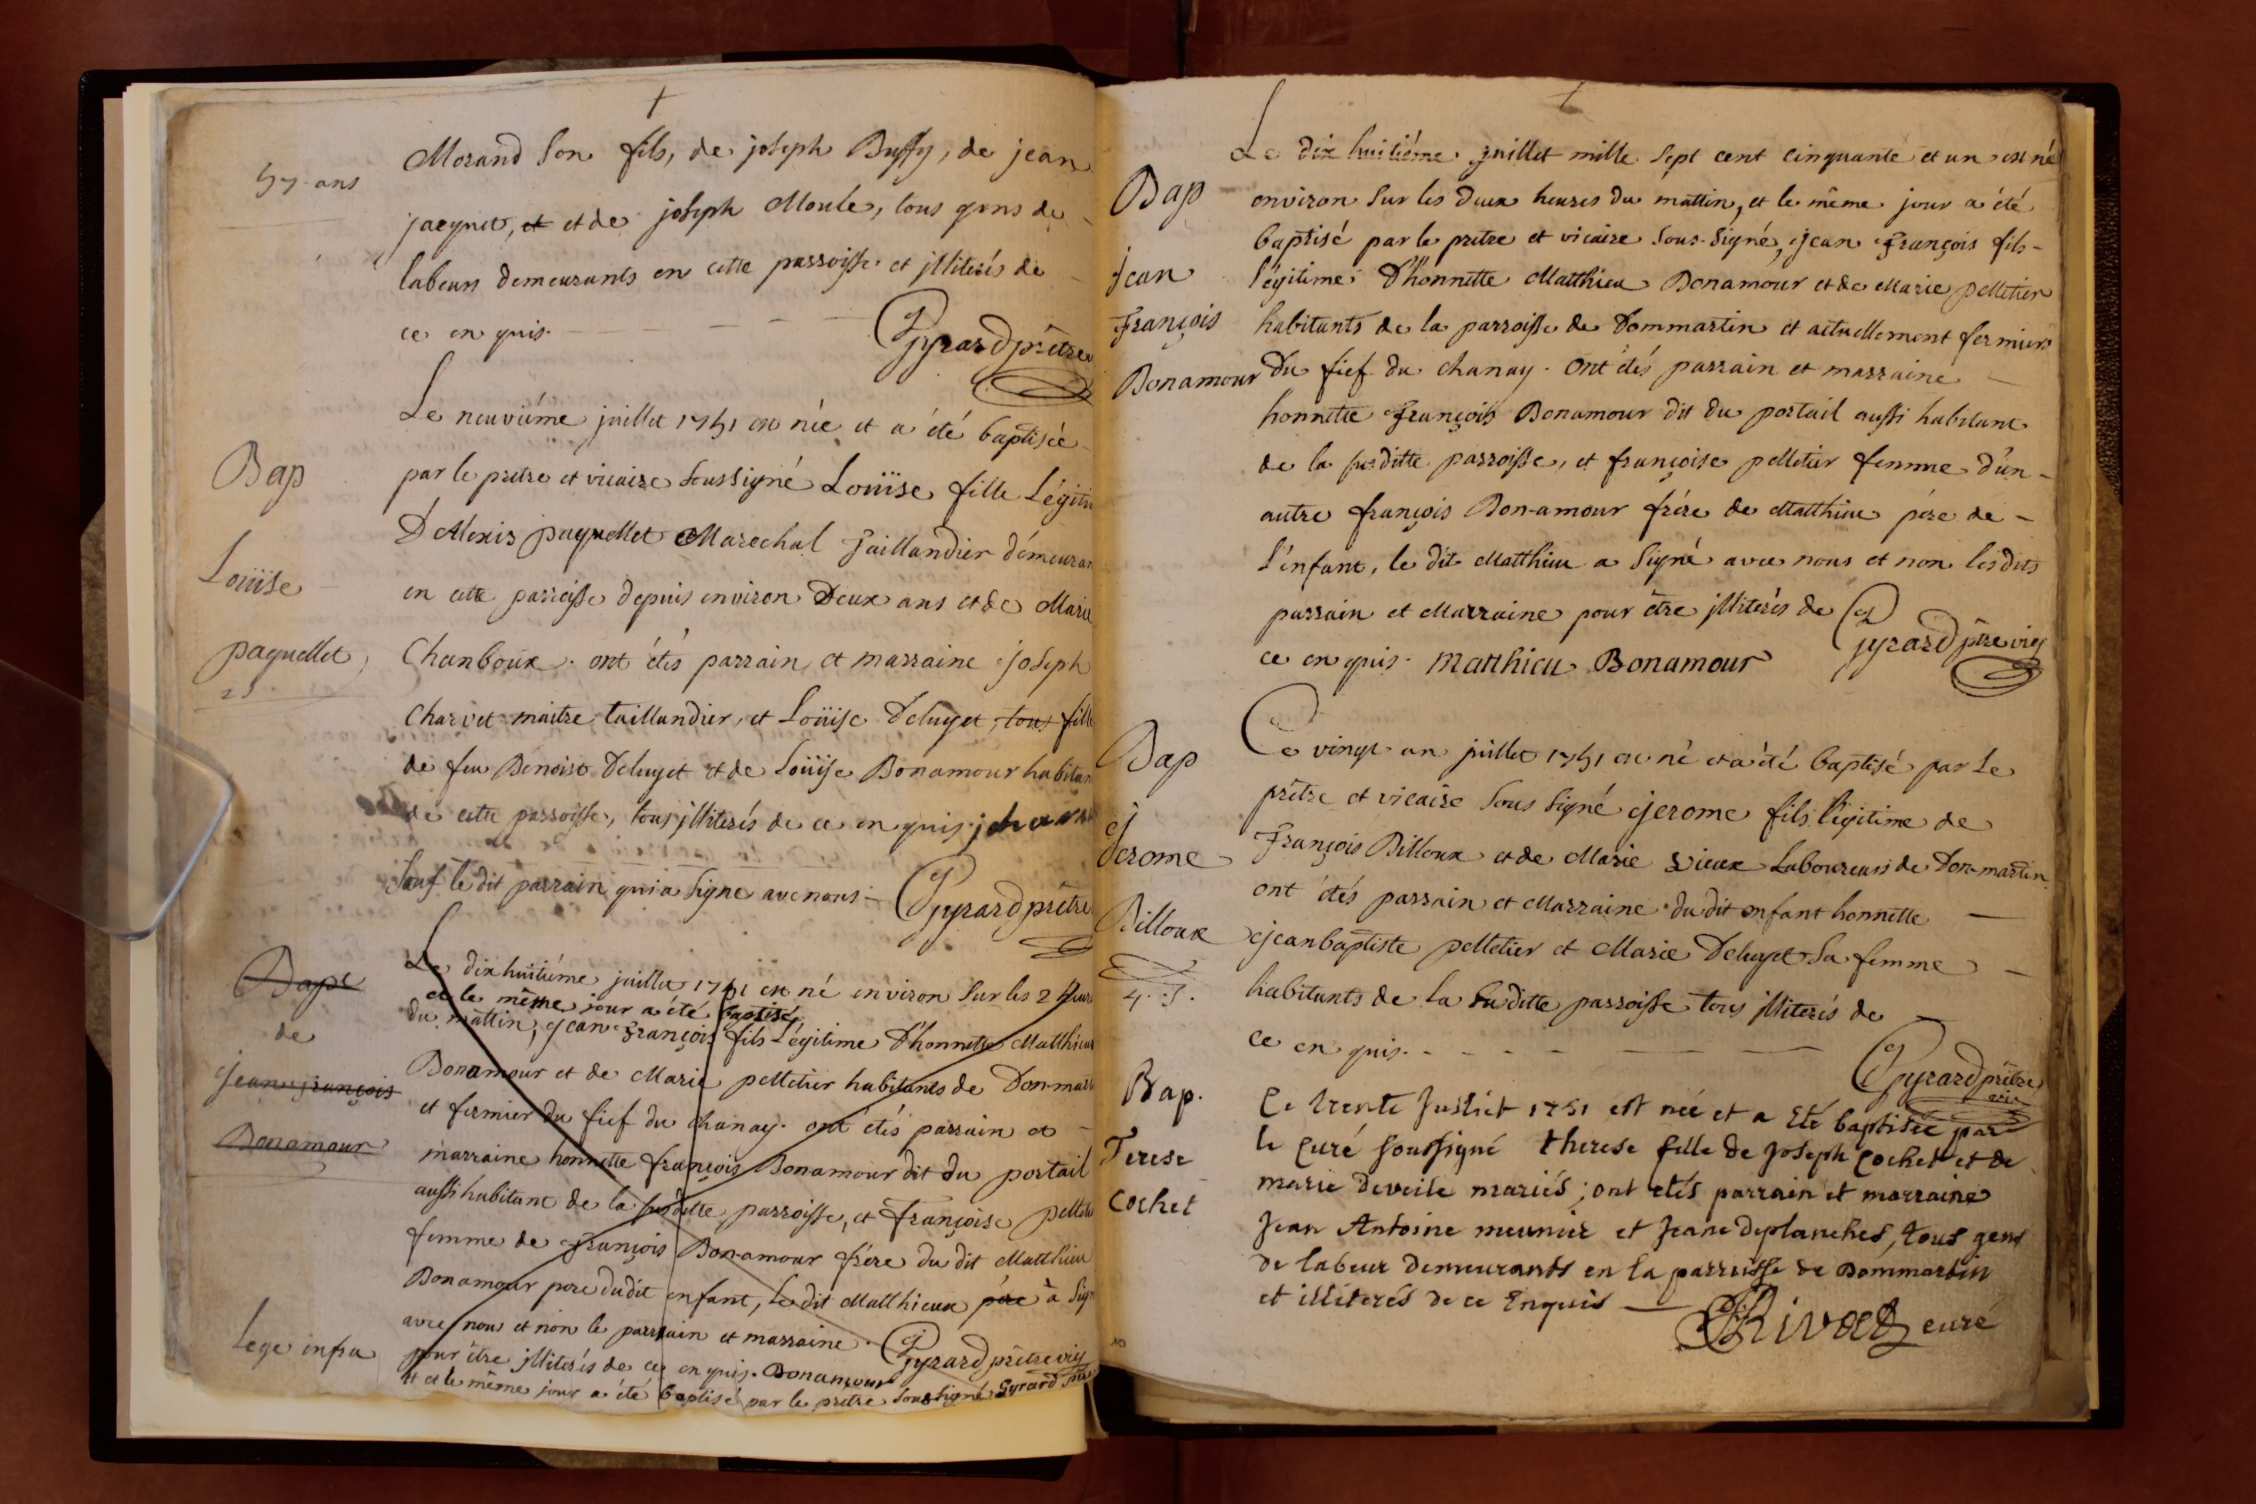 57 ans
Morand son fils, de joseph Buffy, de jean
jacquet, et et de joseph Moule, tous gens de
labeurs demeurants en cette parroisse et illiterés de
ce en quis.
Gyrard prêtre
Bap
Loüise
paquellet
Le neuviéme juillet 1751 est née et a été baptisée
par le pretre et vicaire soussigné Loüise fille Légiti
D'Alexis paquellet Marechal Taillandier démeuran
en cette parroisse depuis environ Deux ans et de Marie
Chanboux. ont étés parrain et marraine joseph
Charvet maitre taillandier, et Loüise Deluyet, tous fille
de feu Benoist Deluyet et de Loüise Bonamour habitan
de cette parroisse, tous illiterés de ce en quis. j charv
Sauf le dit parrain qui a signe avec nous.
Gyrard prêtre
Bapt
de
jean françois
Bonamour
Lege infra
Le dix huitiéme juillet 1751 est né environ sur les 2 heur
et le même jour a été baptisé
du mattin, jean françois fils Légitime D'honnette Matthieu
Bonamour et de Marie pelletier habitants de Dommart
et fermier du fief du chanay. ont étés parrain et
marraine honnette françois Bonamour dit du portail
aussi habitant de la susditte parroisse, et françoise pellet
femme de françois Bonamour frére du dit Matthieu
Bonamour pere dudit enfant, le dit Matthieux pére à sig
avec nous et non le parrain et marraine
pour être illiterés de ce en quis. Bonamour Gyrard prêtre vic
et le même jour a été baptisé par le prêtre soussigné Gyrard
Bap
jean
françois
Bonamour
Le dix huitiéme juillet mille sept cent cinquante et un est né
environ sur les deux heures du mattin, et le même jour a été
baptisé par le pretre et vicaire sous-signé, jean françois fils
légitime D'honnette Matthieu Bonamour et de Marie pelletier
habitants de la parroisse de Dommartin et actuellement fermiers
Du fief du chanay. Ont étés parrain et marraine
honnette françois Bonamour dit du portail aussi habitant
de la susditte parroisse, et françoise pelletier femme d'un
autre françois Bon-amour frére de Matthieu pére de
l'enfant, le dit Matthieu a signé avec nous et non lesdits
parrain et Marraine pour être illiterés de
ce en quis. Matthieu Bonamour Gyrard ptre vic
Bap
jerome
Billoux
Ce vingt un juillet 1751 est né et a été baptisé par Le
prêtre et vicaire sous signé jerome fils légitime de
François Billoux et de Marie vieux Laboureurs de Dommartin
ont étés parrain et Marraine du dit enfant honnette
jeanbaptiste pelletier et Marie Deluyet sa femme
habitants de la suditte parroisse tous illiterés de
ce en quis.
Gyrard prêtre
vic
Bap.
Terese
cochet
Le trente Juillet 1751 est née et a Eté baptisée par
le Curé soussigné therese fille de Joseph Cochet et de
marie deveile mariés; ont etés parrain et marraine
Jean Antoine meunier et Jeane deplanches, tous gens
de labeur demeurants en la parroisse de Dommartin
et illiterés de ce Enquis
Rivat curé